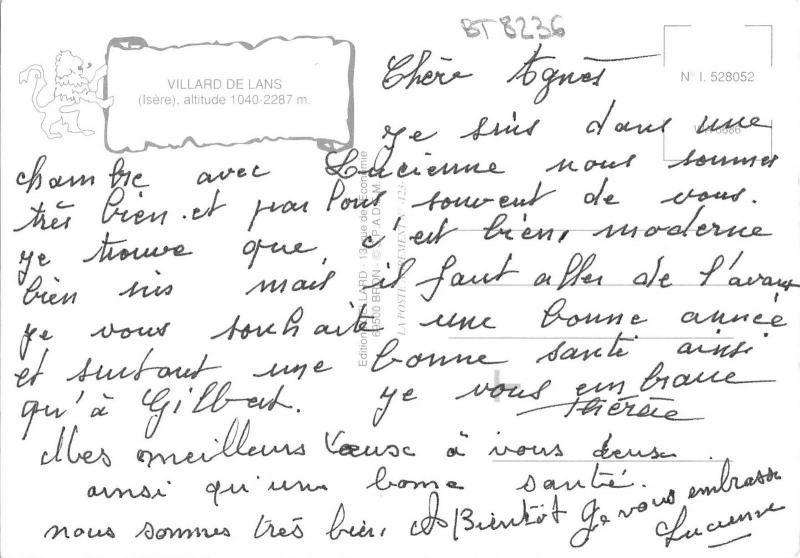 BT 8236
VILLARD DE LANS
(Isère), altitude 1040-2287 m.
N° I. 528052
Chère Agnès
je suis dans une
chambre avec Lucienne nous sommes
très bien. et parlons souvent de vous.
je trouve que c'est bien, moderne
bien mais il faut aller de l'avant
je vous souhaite une bonne année
et surtout une bonne santé ainsi
qu'à Gilbert. je vous embrasse
Thérèse
Mes meilleurs Vœux à vous deux.
ainsi qu'une bonne santé.
nous sommes très bien, A Bientôt je vous embrasse
Lucienne
69500 BRON